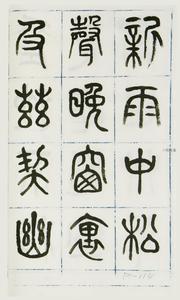 新雨中松
聲晚窗裏
及茲契幽